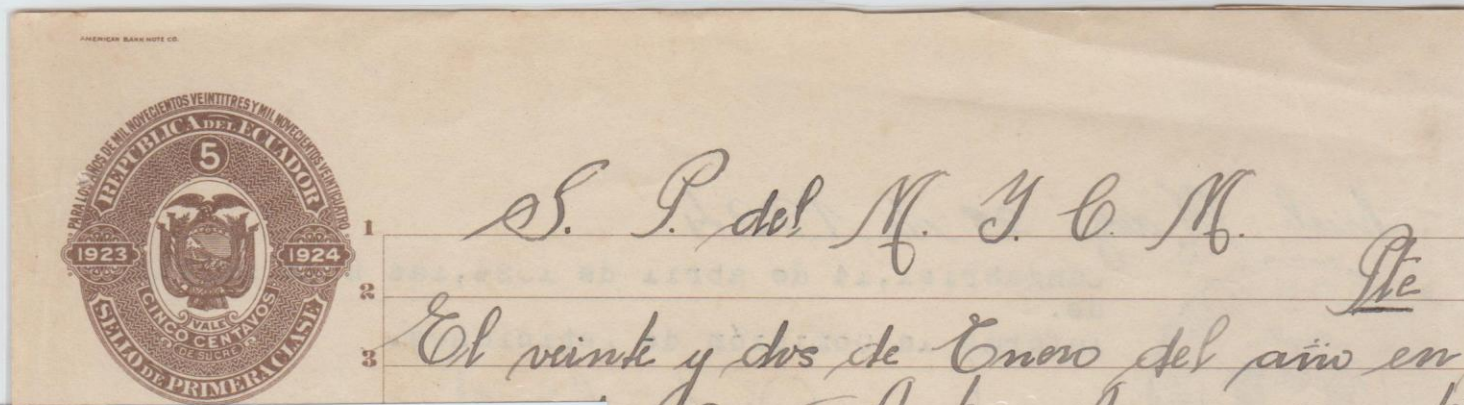 AMERICAN BANK NOTE CO.
PARA LOS AÑOS DE MIL NOVECIENTOS VEINTITRES Y MIL NOVECIENTOS VEINTICUATRO
REPUBLICA DEL ECUADOR
5
1923 1924
VALE
CINCO CENTAVOS
DE SUCRE
SELLO DE PRIMERA CLASE
1 S. P. del M. Y. C. M.
2 Pte
3 El veinte y dos de Enero del año en